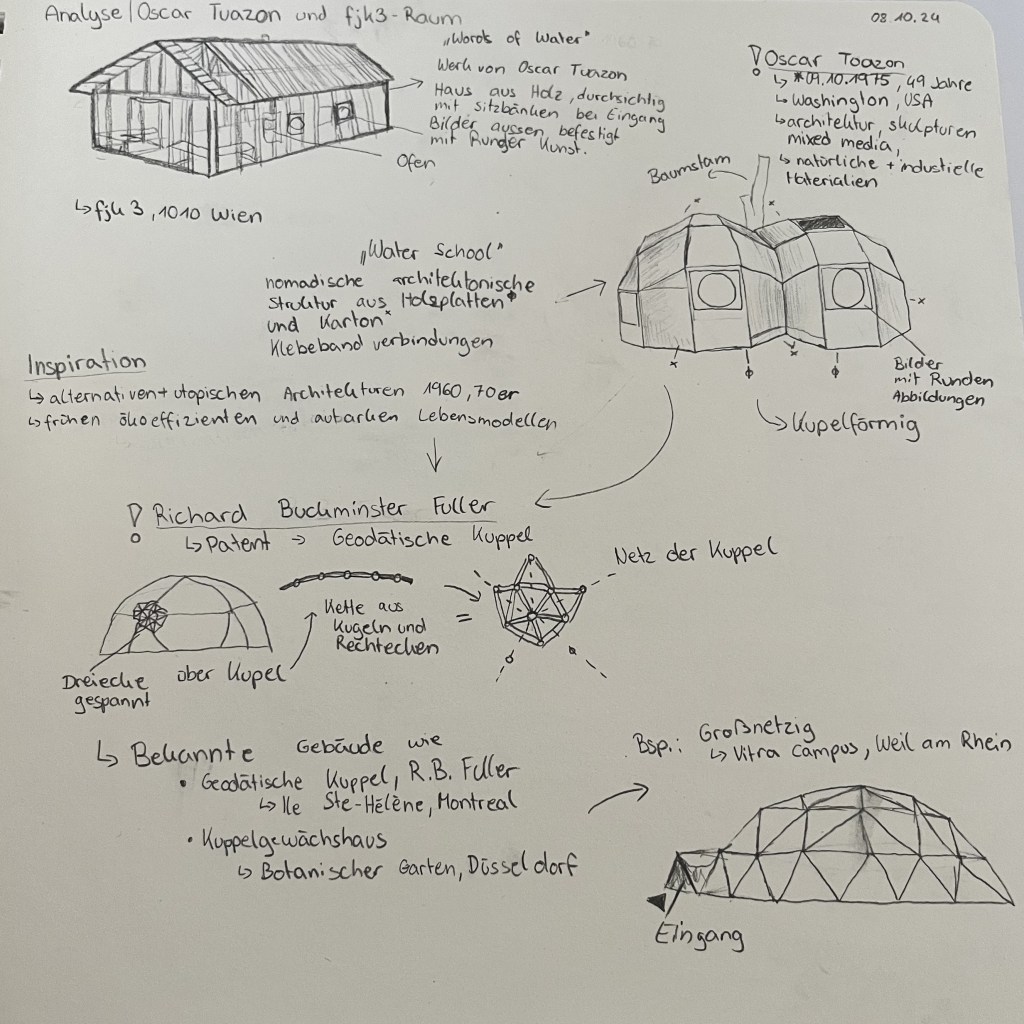 Analyse | Oscar Tuazon und fjk3-Raum
08.10.24
„Words of Water"
Werk von Oscar Tuazon
Haus aus Holz, durchsichtig
mit Sitzbänken bei Eingang
Bilder aussen, befestigt
mit Runder Kunst.
Ofen
↳ fjk 3, 1010 Wien
! Oscar Toazon
↳ *09.10.1975, 49 Jahre
↳ Washington, USA
↳ architektur, skulpturen
mixed media,
↳ natürliche + industielle
Materialien
Baumstam
„Water School"
nomadische architektonische
Struktur aus Holzplatten ϕ
und Karton x
Klebeband verbindungen
Bilder
mit Runden
Abbildungen
↳ Kupelförmig
Inspiration
↳ alternativen + utopischen Architekturen 1960, 70er
↳ frühen ökoeffizienten und autarken Lebensmodellen
! Richard Buckminster Fuller
↳ Patent → Geodätische Kuppel
Netz der Kuppel
Kette aus
Kugeln und
Rechtecken
=
Dreiecke über Kupel
gespannt
↳ Bekannte Gebäude wie
• Geodätische Kuppel, R.B. Fuller
↳ Ile Ste-Hélène, Montreal
• Kuppelgewächshaus
↳ Botanischer Garten, Düsseldorf
Bsp.: Großnetzig
↳ Vitra Campus, Weil am Rhein
Eingang